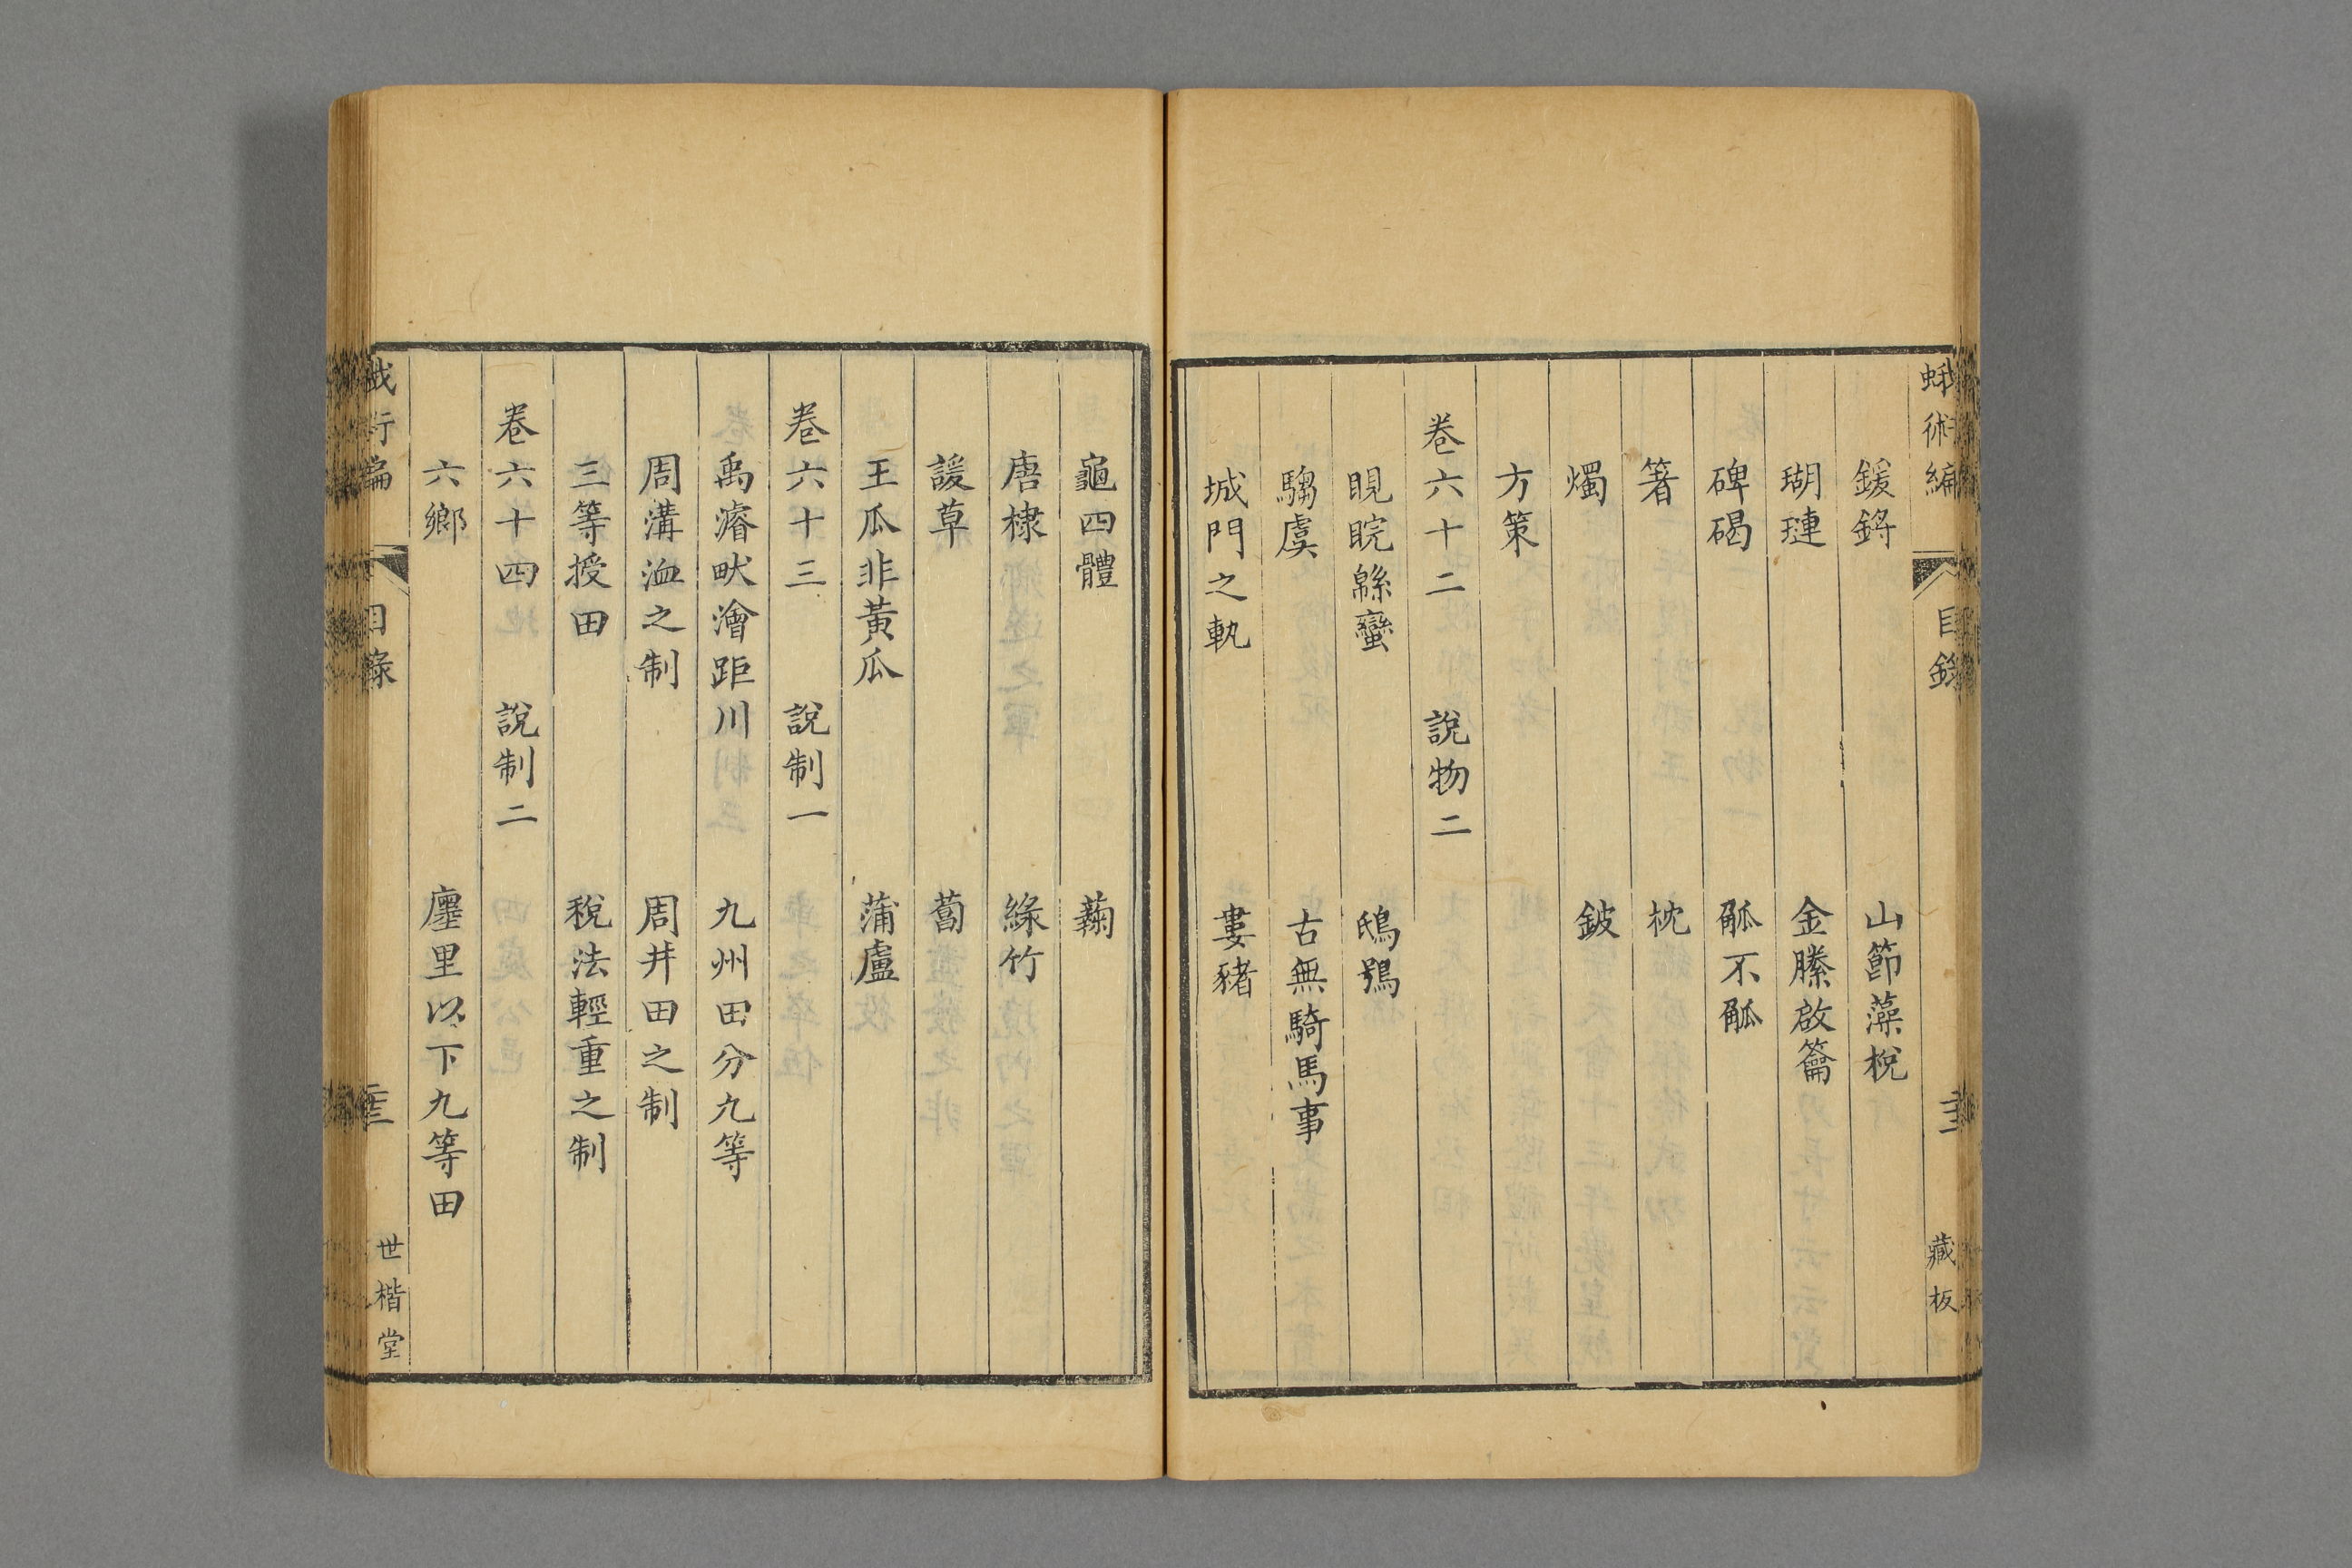 蛾術編 目錄 藏板
鍰鋝 山節藻梲
瑚璉 金縢啟籥
碑碣 觚不觚
箸 枕
燭 鈹
方策
卷六十二 說物二
睍睆緜蠻 鴟鴞
騶虞 古無騎馬事
城門之軌 婁豬
龜四體 蘜
唐棣 綠竹
諼草 蔔
王瓜非黃瓜 蒲盧
卷六十三 說制一
禹濬畎澮距川 九州田分九等
周溝洫之制 周井田之制
三等授田 稅法輕重之制
卷六十四 說制二
六鄉 廛里以下九等田
蛾術編 目錄 世楷堂